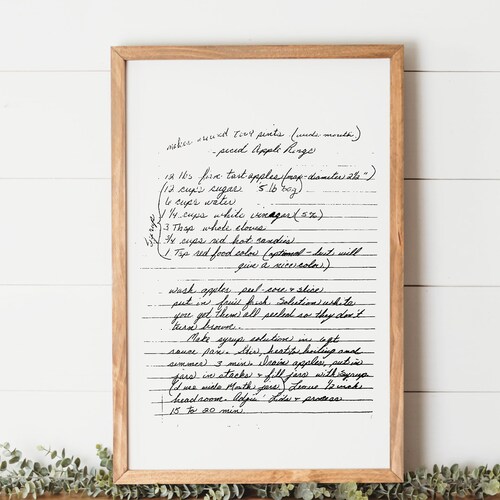 makes around 8 pints (wide mouth)
spiced Apple Rings
12 lbs firm tart apples (max-diameter 2½")
12 cups sugar 5 lb bag
6 cups water
1¼ cups white vinegar (5%)
3 Tbsp whole cloves
¾ cups red hot candies
1 Tsp red food color (optional - but will
give a nice color)
Syrup
wash apples peel core & slice
put in fruit fresh Solution while
you get them all peeled so they don't
turn brown.
Make syrup solution in 6qt
sauce pan. Stir, heat to boiling and
simmer 3 min. Drain apples, put in
jars in stacks & fill jars with syrup
(I use wide Mouth jars) Leave ½ inch
headroom. Adjust Lids & process
15 to 20 min